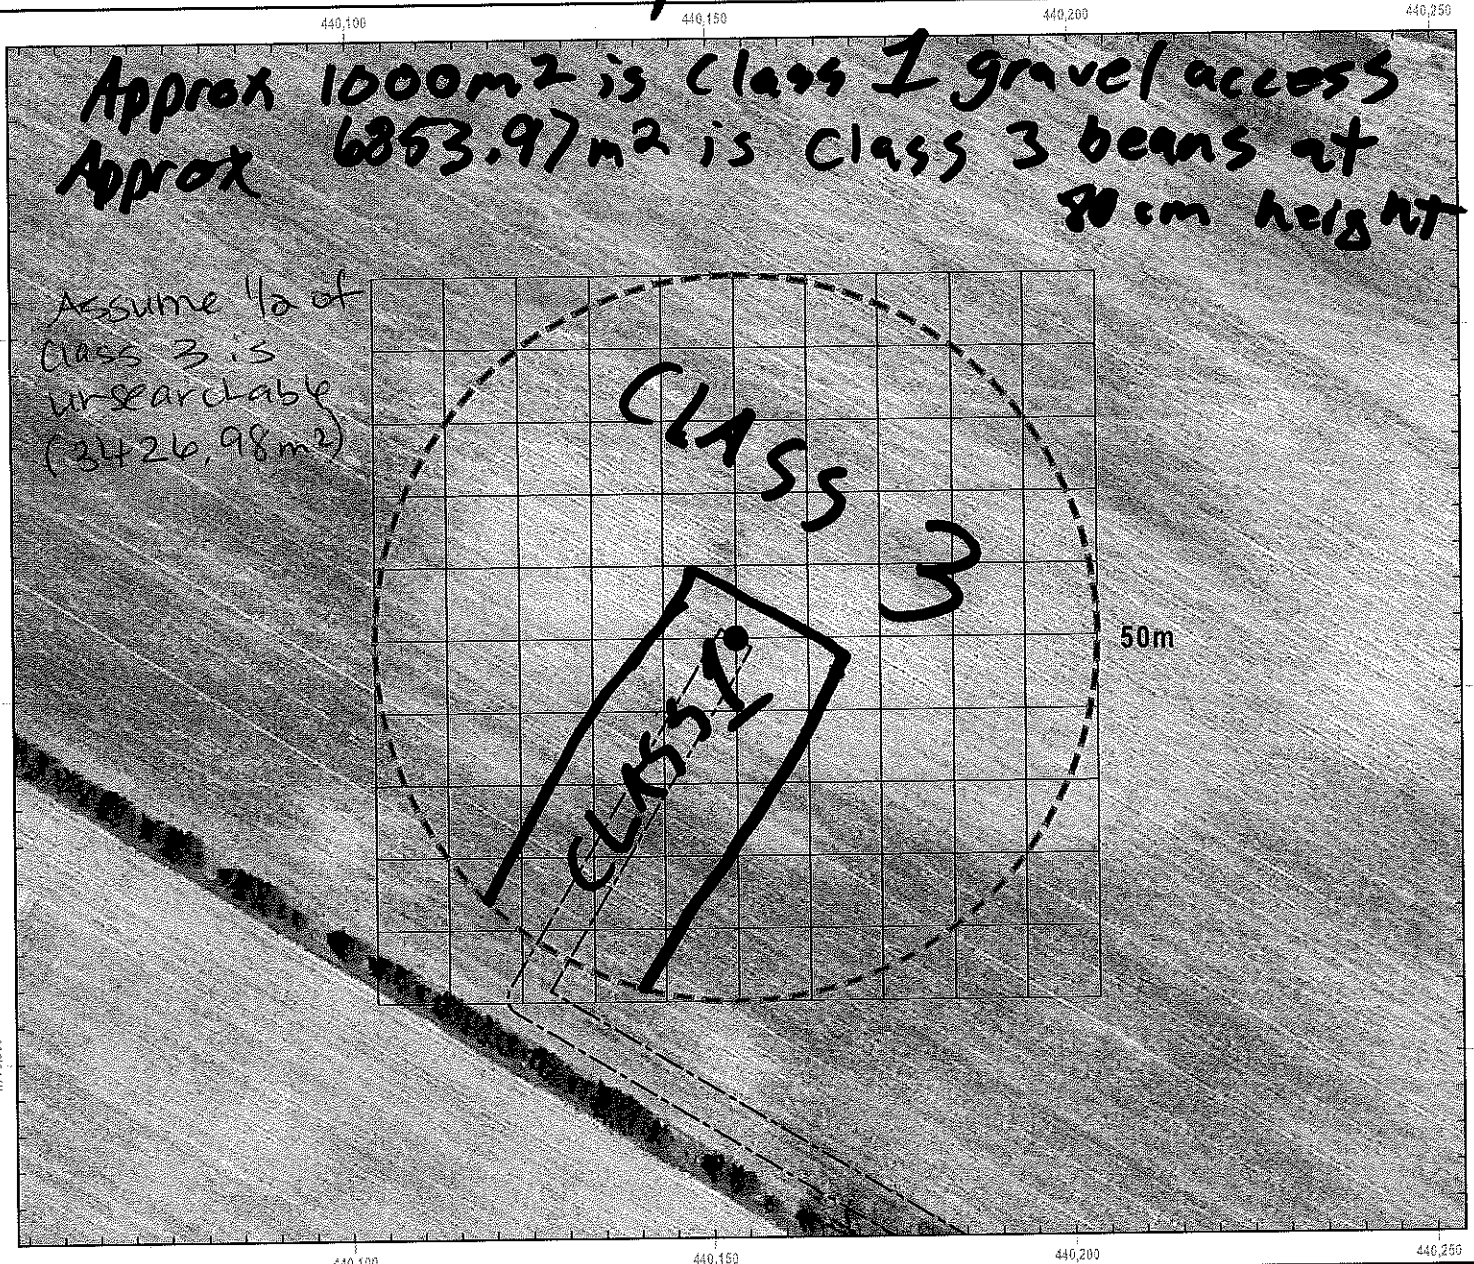 440,100 440,150 440,200 440,250
Approx 1000m2 is Class 1 gravel access
Approx 6853.97m2 is Class 3 beans at
80 cm height
Assume 1/2 of
Class 3 is
unsearchable
(3426.98m2)
CLASS 3
50m
CLASS 1
440,100 440,150 440,200 440,250